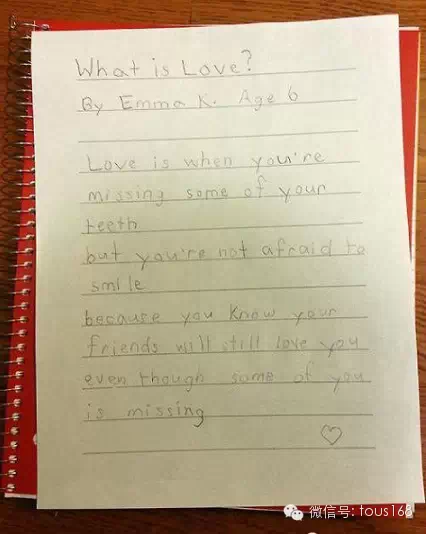 What is Love?
By Emma K. Age 6
Love is when you're
missing some of your
teeth
but you're not afraid to
smile
because you know your
friends will still love you
even though some of you
is missing
微信号: tous168